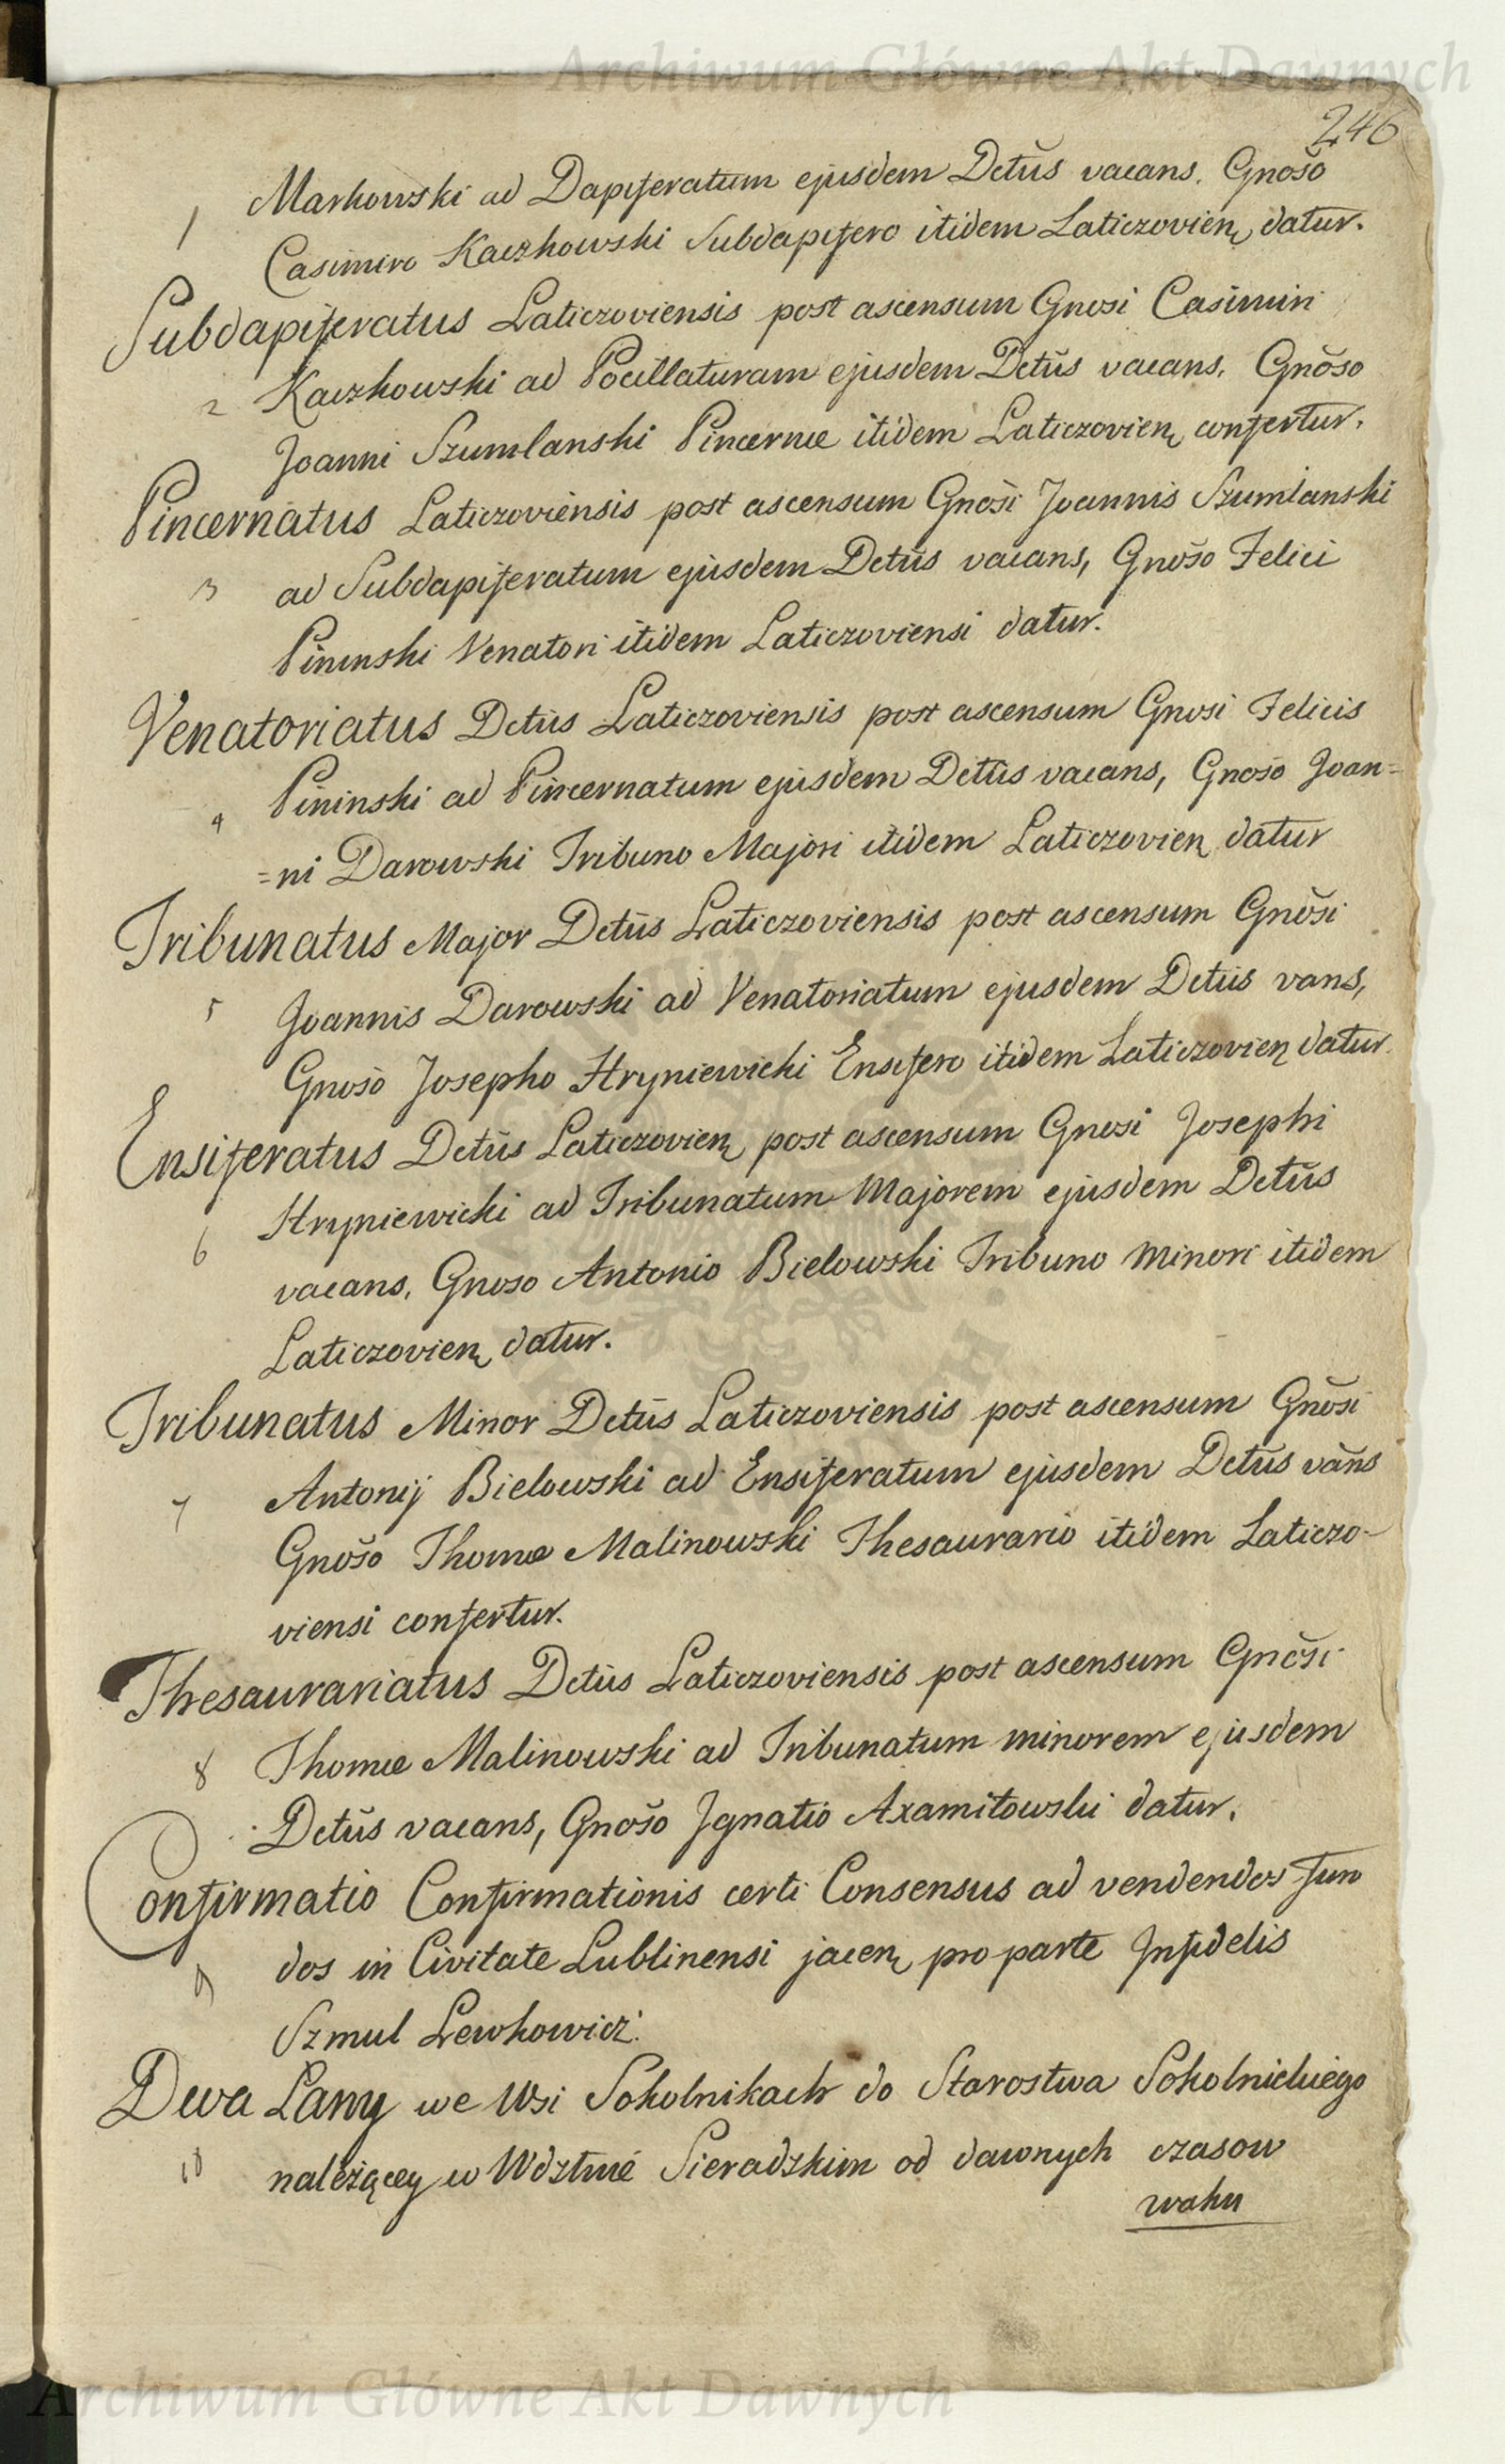 Archiwum Główne Akt Dawnych
246
Markowski ad Dapiferatum ejusdem Dctűs vacans, Gnoso
1 Casimiro Kaczkowski Subdapifero itidem Laticzovien datur.
Subdapiferatus Laticzoviensis post ascensum Gnosi Casimiri
2 Kaczkowski ad Pocillaturam ejusdem Dctűs vacans, Gnoso
Joanni Szumlanski Pincernæ itidem Laticzovien confertur.
Pincernatus Laticzoviensis post ascensum Gnosi Joannis Szumlanski
3 ad Subdapiferatum ejusdem Dctűs vacans, Gnoso Felici
Pininski Venatori itidem Laticzoviensi datur.
Venatoriatus Dctűs Laticzoviensis post ascensum Gnosi Felicis
4 Pininski ad Pincernatum ejusdem Dctűs vacans, Gnoso Joan=
=ni Darowski Tribuno Majori itidem Laticzovien datur
Tribunatus Major Dctűs Laticzoviensis post ascensum Gnosi
5 Joannis Darowski ad Venatoriatum ejusdem Dctűs vans,
Gnoso Josepho Hryniewicki Ensifero itidem Laticzovien datur.
Ensiferatus Dctűs Laticzovien post ascensum Gnosi Josephi
6 Hryniewicki ad Tribunatum Majorem ejusdem Dctűs
vacans, Gnoso Antonio Bielowski Tribuno Minori itidem
Laticzovien datur.
Tribunatus Minor Dctűs Laticzoviensis post ascensum Gnosi
7 Antonij Bielowski ad Ensiferatum ejusdem Dctűs vans
Gnoso Thomæ Malinowski Thesaurario itidem Laticzo-
viensi confertur.
Thesaurariatus Dctűs Laticzoviensis post ascensum Gnosi
8 Thomæ Malinowski ad Tribunatum minorem ejusdem
Dctűs vacans, Gnoso Ignatio Axamitowski datur.
Confirmatio Confirmationis certi Consensus ad vendendos fun
9 dos in Civitate Lublinensi jacen pro parte Infidelis
Szmul Lewkowicz.
Dwa Łany we Wsi Sokolnikach do Starostwa Sokolnickiego
10 należącey w Wdztwie Sieradzkim od dawnych czasow
waku
Archiwum Główne Akt Dawnych